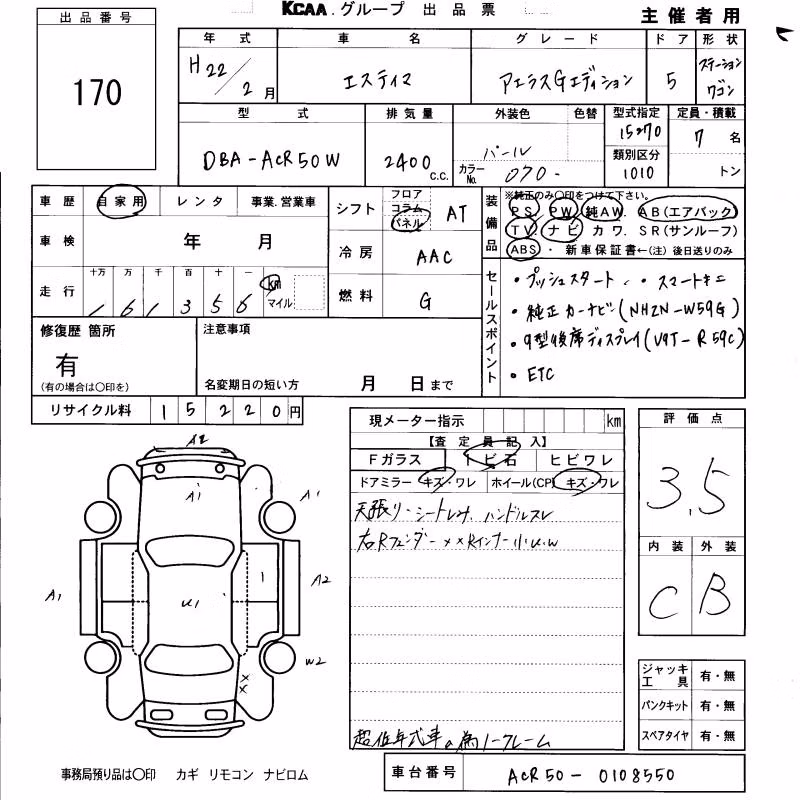 KCAA グループ 出品票
主催者用
出品番号
170
年式 車名 グレード ドア 形状
H22/2月 エスティマ アエラスGエディション 5 ステーションワゴン
型式 排気量 外装色 色替 型式指定 定員・積載
DBA-ACR50W 2400 c.c. パール 15270 7名
カラーNo. 070- 類別区分 1010 トン
車歴 自家用 レンタ 事業.営業車
シフト フロア コラム パネル AT
車検 年 月
冷房 AAC
走行 十万 万 千 百 十 一 km マイル
1 6 1 3 5 6
燃料 G
装備品 ※純正のみ○印をつけて下さい。
PS. PW. 純AW. AB(エアバック)
TV. ナビ カワ. SR(サンルーフ)
ABS・新車保証書←(注)後日送りのみ
セールスポイント
・プッシュスタート ・スマートキー
・純正カーナビ(NHZN-W59G)
・9型後席ディスプレイ(V9T-R59C)
・ETC
修復歴 箇所
有
(有の場合は○印を)
注意事項
名変期日の短い方 月 日まで
リサイクル料 15220円
現メーター指示 km
【査定員記入】
Fガラス トビ石 ヒビワレ
ドアミラー キズ・ワレ ホイール(CP) キズ・ワレ
天張り・シートレみ、ハンドルスレ
右Rフェンダー××Rインナー小U.W
超低年式車の為ノークレーム
評価点
3.5
内装 外装
C B
A2
A1
A1
A1
U1
1
A2
W2
×
×
ジャッキ工具 有・無
パンクキット 有・無
スペアタイヤ 有・無
事務局預り品は○印 カギ リモコン ナビロム
車台番号 ACR50-0108550